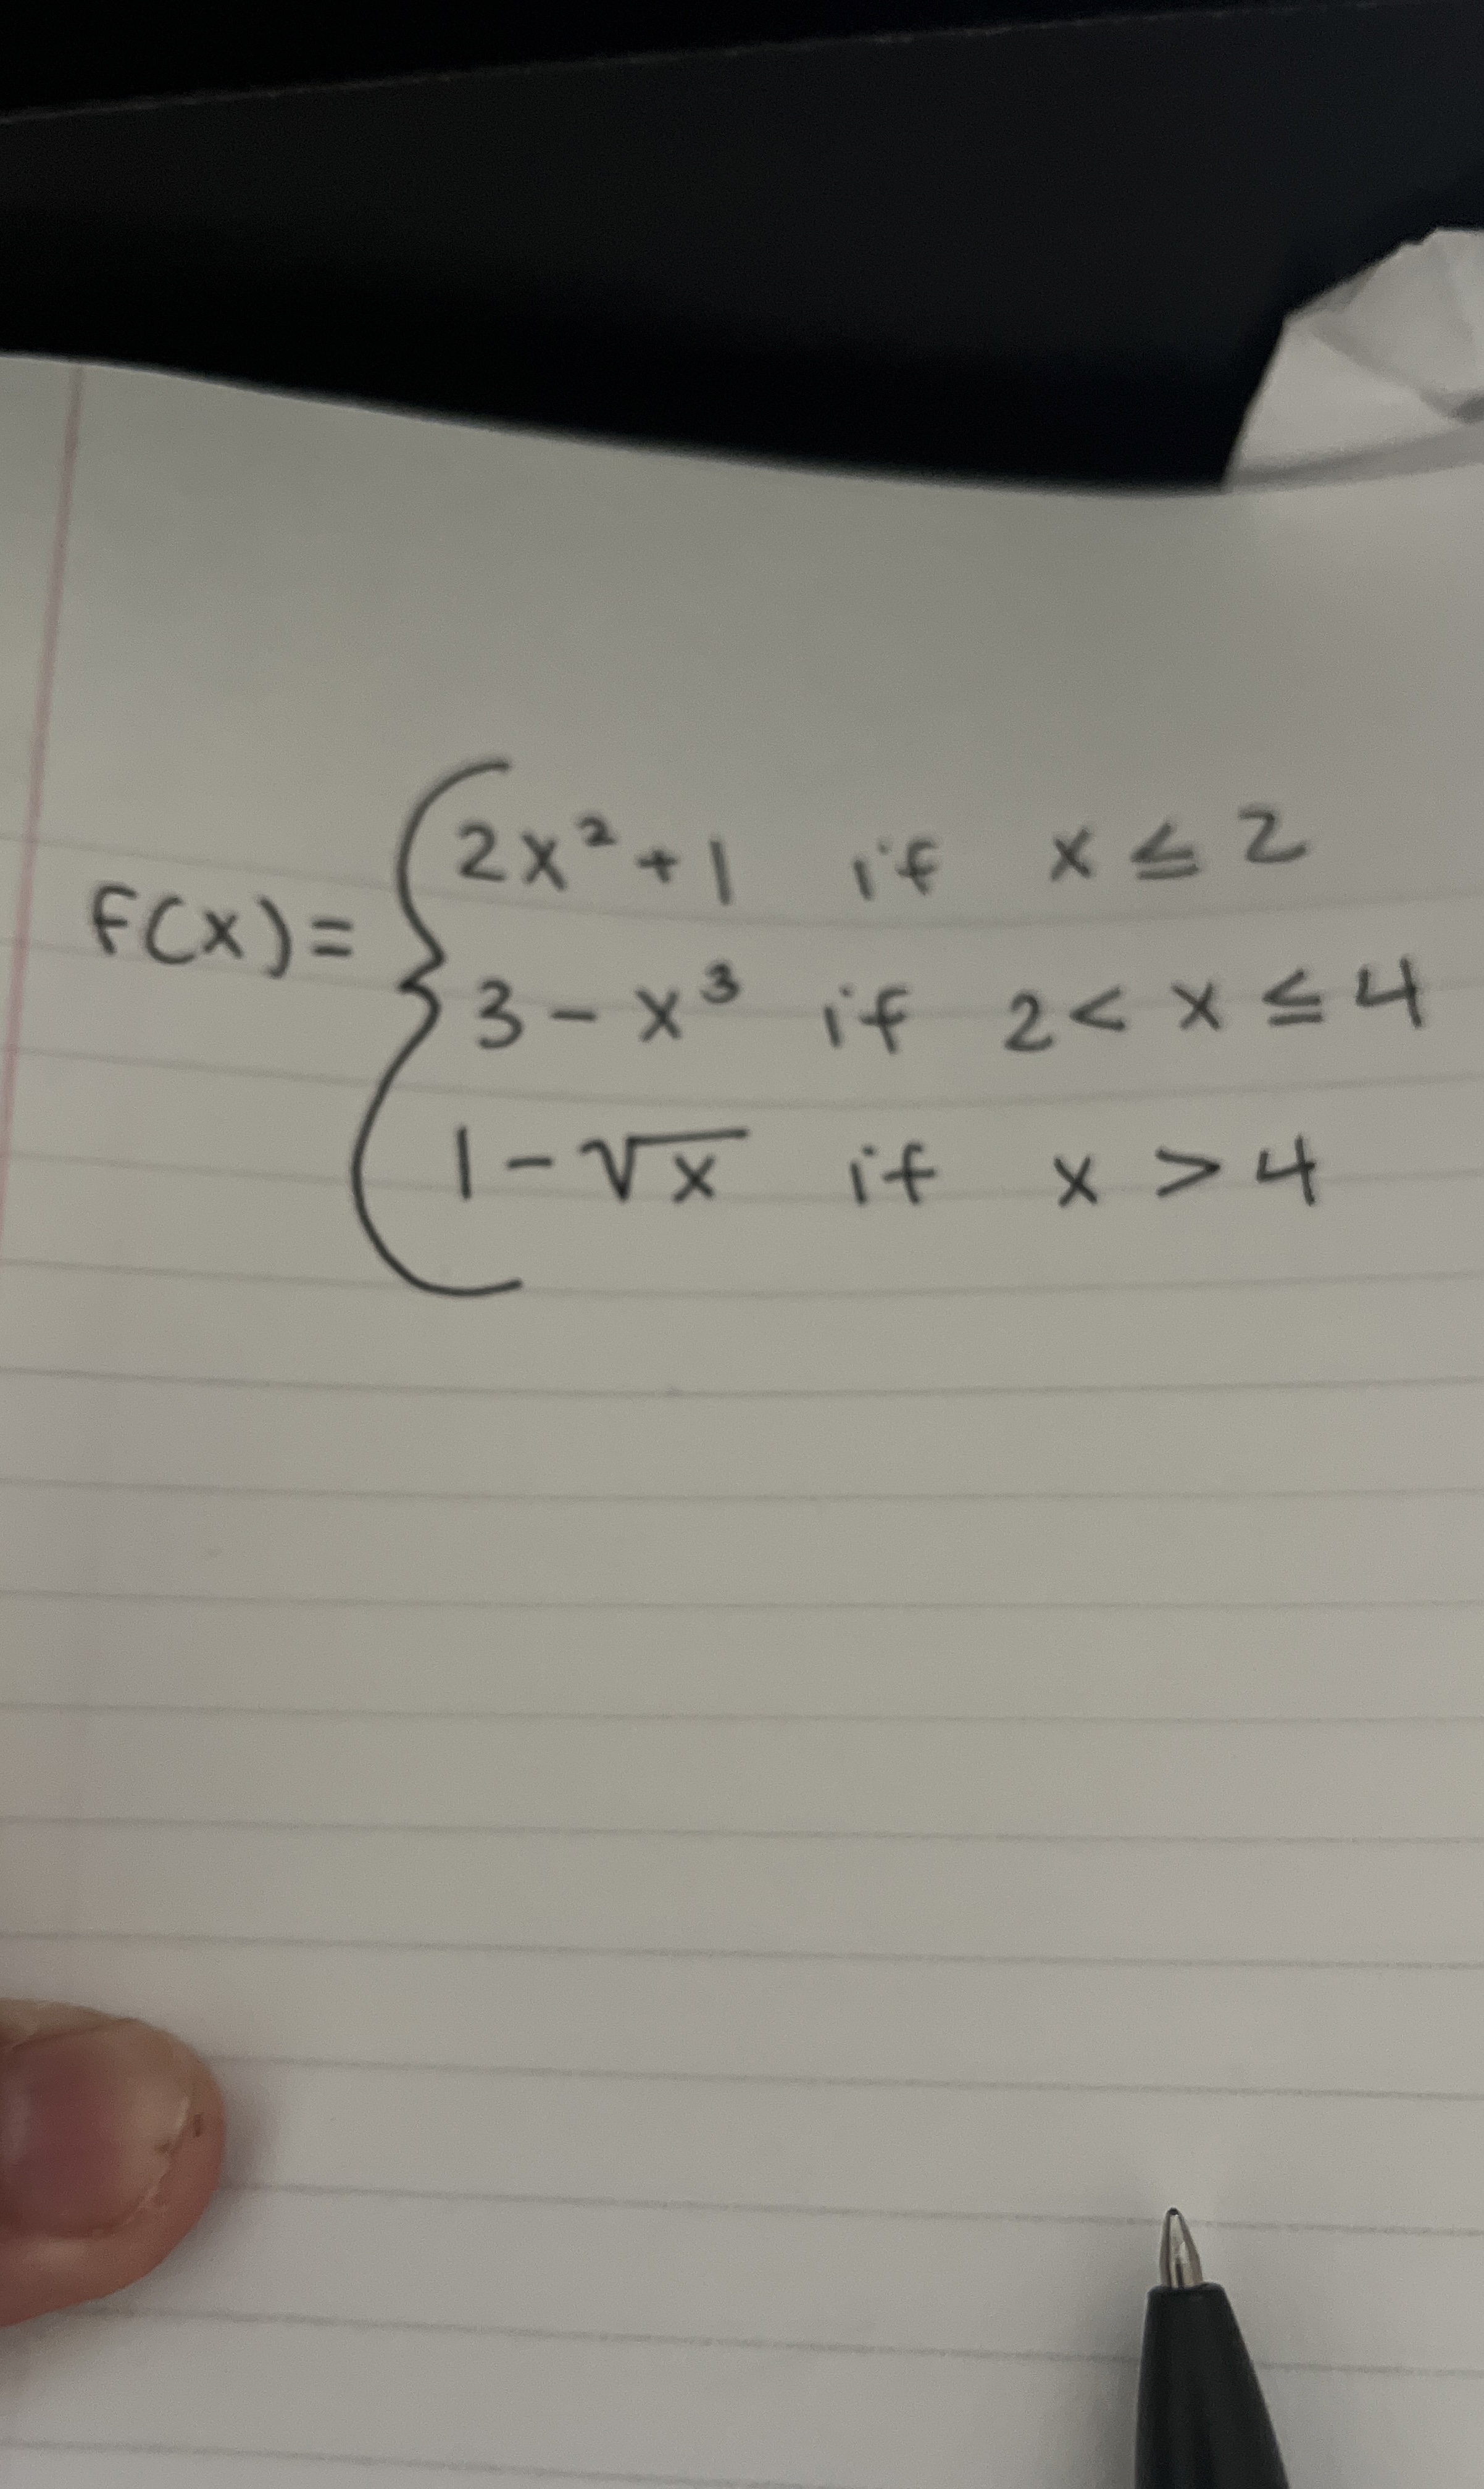 F(x) = { 2x² + 1 if x ≤ 2
3 - x³ if 2 < x ≤ 4
1 - √x if x > 4